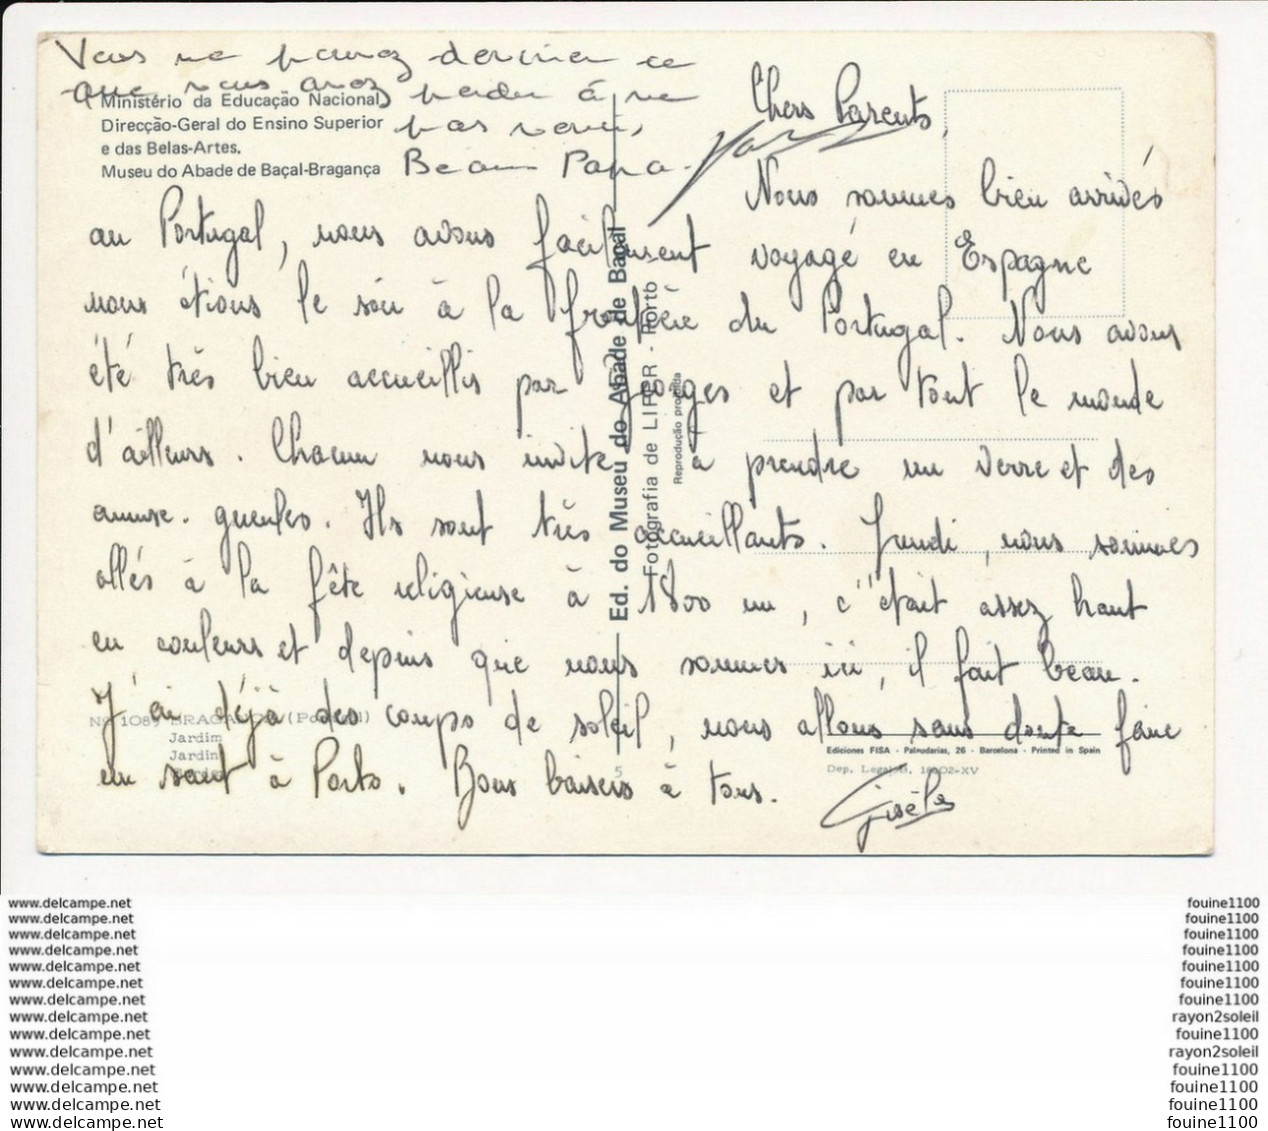 Vous ne pouvez deviner ce
que vous avez perdu à ne
pas venir,
Beau Papa.
Ministério da Educação Nacional
Direcção-Geral do Ensino Superior
e das Belas-Artes.
Museu do Abade de Baçal-Bragança
Chers Parents,
Nous sommes bien arrivés
au Portugal, nous avons facilement voyagé en Espagne
nous étions le soir à la frontière du Portugal. Nous avons
été très bien accueillis par Georges et par tout le monde
d'ailleurs. Chacun nous invite à prendre un verre et des
amuse-gueules. Ils sont très accueillants. Jeudi, nous sommes
allés à la fête religieuse à 1800 m, c'était assez haut
en couleurs et depuis que nous sommes ici, il fait beau.
J'ai déjà des coups de soleil, nous allons sans doute faire
un saut à Porto. Bons baisers à tous.
Gisèle
Ed. do Museu do Abade de Baçal
Fotografia de LIFER - Porto
Reprodução proibida
Nº 1089 BRAGANÇA (Portugal)
Jardim
Jardin
5
Ediciones FISA - Palaudarias, 26 - Barcelona - Printed in Spain
Dep. Legal B. -XV
www.delcampe.net
www.delcampe.net
www.delcampe.net
www.delcampe.net
www.delcampe.net
www.delcampe.net
www.delcampe.net
www.delcampe.net
www.delcampe.net
www.delcampe.net
www.delcampe.net
www.delcampe.net
www.delcampe.net
www.delcampe.net
fouine1100
fouine1100
fouine1100
fouine1100
fouine1100
fouine1100
fouine1100
rayon2soleil
fouine1100
rayon2soleil
fouine1100
fouine1100
fouine1100
fouine1100